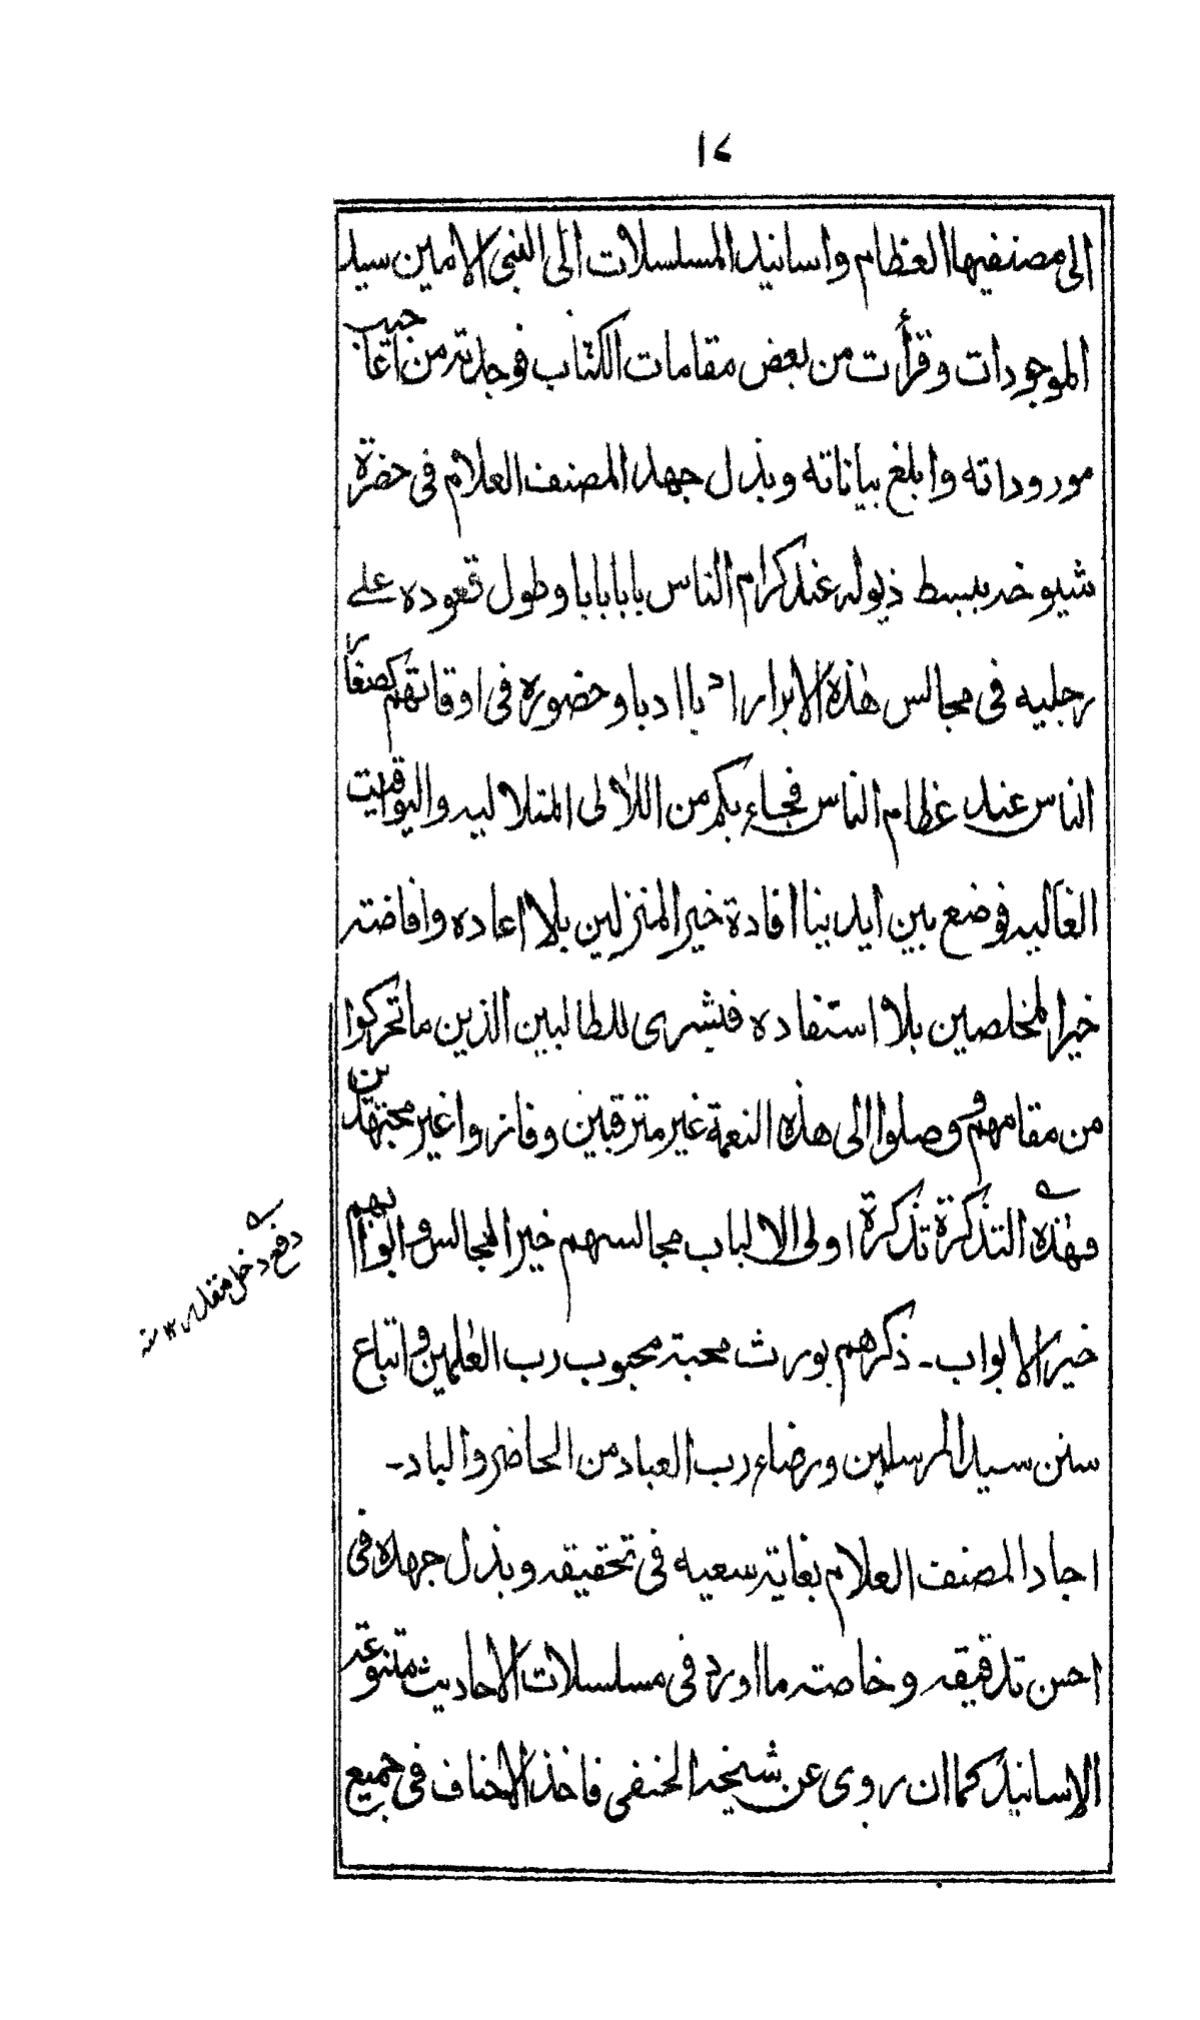 ١٧
الى مصنفيها العظام واسانيد المسلسلات الى النبى الامين سيد
الموجودات وقرأت من بعض مقامات الكتاب فوجدته من اعاجيب
موروداته وابلغ بياناته وبذل جهد المصنف العلام فى حضرة
شيوخه ببسط ذيوله عند كرام الناس بابا بابا وطول قعوده على
رجليه فى مجالس هذه الابرار ادبا ادبا وحضوره فى اوقاتهم كصغار
الناس عند عظام الناس فجاء بكم من اللآلى المتلاليه واليواقيت
الغاليه فوضع بين ايدينا افادة خير المنزلين بلا اعاده وافاضته
خير المخلصين بلا استفاده فبشرى للطالبين الذين ما تحركوا
من مقامهم ووصلوا الى هذه النعمة غير مترقبين وفازوا غير مجتهدين
فهذه التذكرة تذكرة اولى الالباب مجالسهم خير المجالس وابوابهم
خير الابواب ـ ذكرهم يورث محبة محبوب رب العلمين واتباع
سنن سيد المرسلين ورضاء رب العباد من الحاضر والباد ـ
اجاد المصنف العلام بغاية سعيه فى تحقيقه وبذل جهده فى
احسن تدقيقه وخاصته ما اورد فى مسلسلات الاحاديث متنوعة
الاسانيد كما ان روى عن شيخه الحنفى فاخذ الاحناف فى جميع
دفع دخل مقدر ١٢ منه